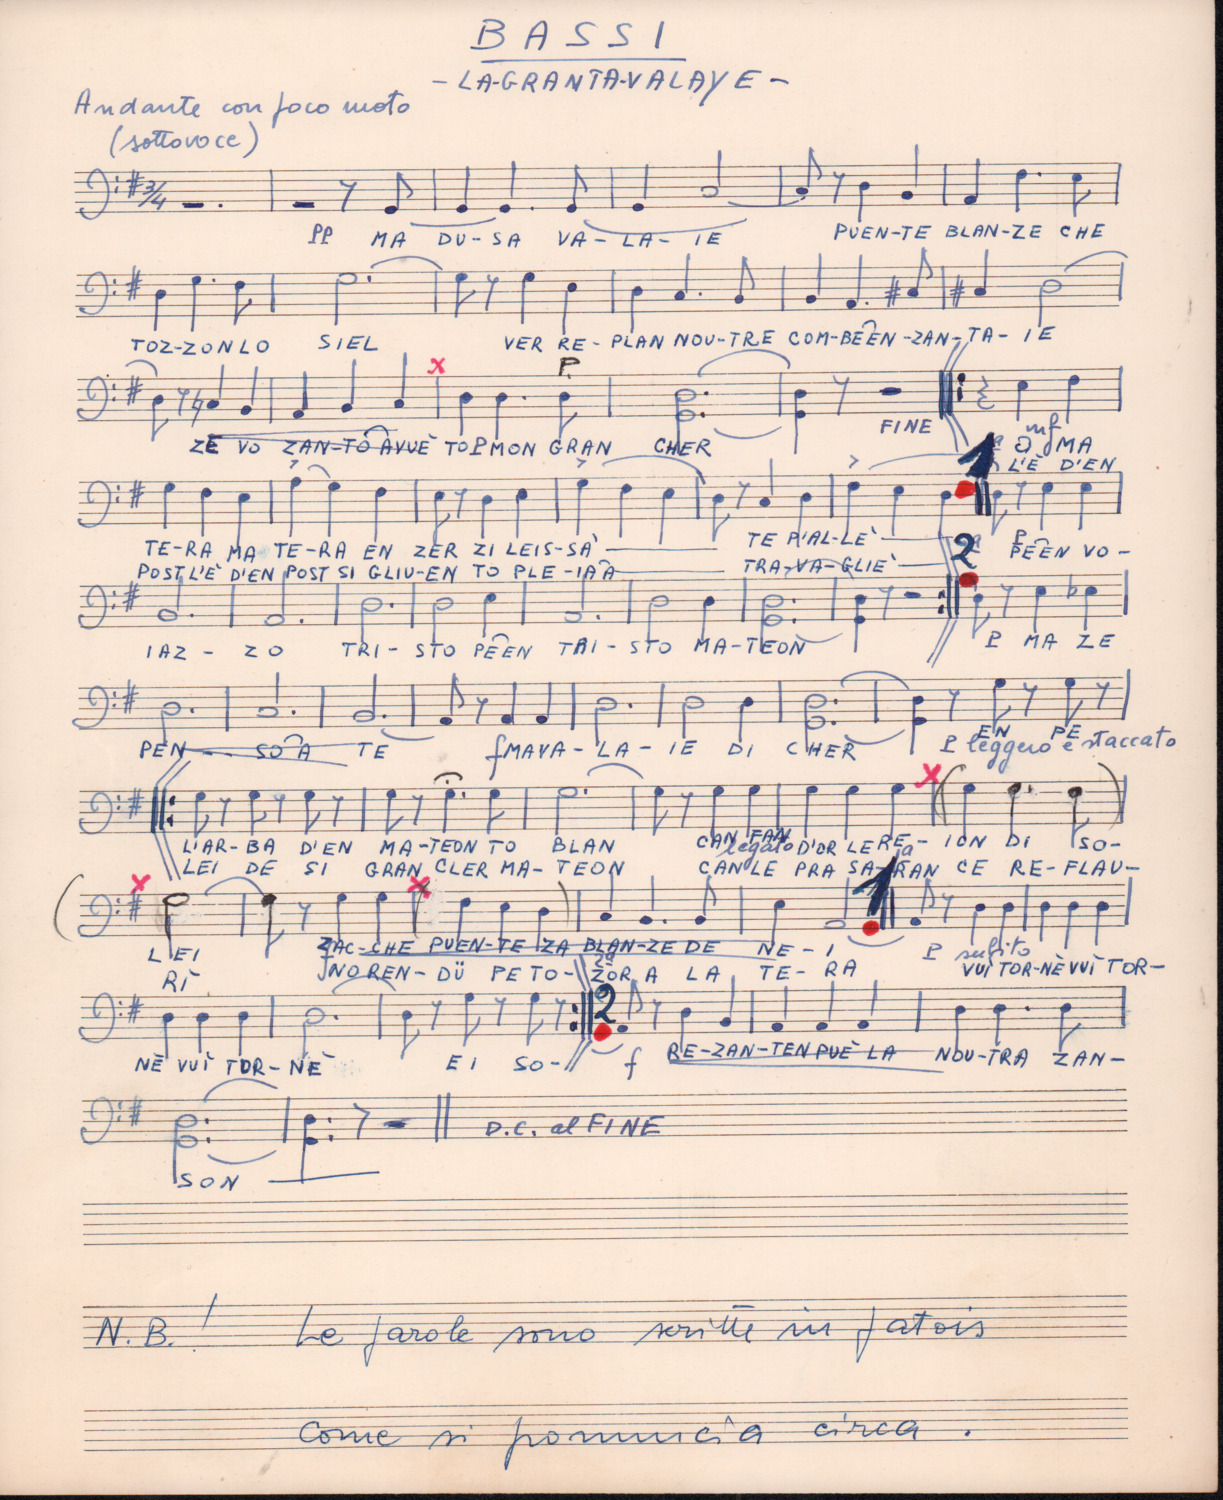 BASSI
-LA-GRANTA-VALAYE-
Andante con poco moto
(sottovoce)
3/4
pp MA DU-SA VA-LA-IE PUEN-TE BLAN-ZE CHE
TOZ-ZONLO SIEL VER RE-PLAN NOU-TRE COM-BEEN-ZAN-TA-IE
x P.
ZE VO ZAN-TÔ AVUÈ TO P MON GRAN CHER FINE
mf
MA
L'È D'EN
TE-RA MA TE-RA EN ZER ZI LEIS-SÀ TE P'AL-LÈ P BEEN VO-
POST L'È D'EN POST SI GLIU-EN TO PLE-IAA TRA-VA-GLIÈ
2
IAZ-ZO TRI-STO PEEN TRI-STO MA-TEON P MA ZE
PEN SO A TE f MA VA-LA-IE DI CHER EN PE
P leggero e staccato
x
L'AR-BA D'EN MA-TEON TO BLAN CAN FAN D'OR LE RE-ION DI SO-
legato
LEI DE SI GRAN CLER MA-TEON CAN LE PRA SA-RAN CE RE-FLAU-
x x
LEI ZAC-CHE PUEN-TE ZA BLAN-ZE DE NE-I P subito
RÌ INOREN-DÜ PE TO-ZOR A LA TE-RA VUÌ TOR-NÈ VUÌ TOR-
2
NÈ VUÌ TOR-NÈ EI SO- f RE-ZAN-TEN PUÈ LA NOU-TRA ZAN-
D.C. al FINE
SON
N.B.! Le parole sono scritte in patois
Come si pronuncia circa.